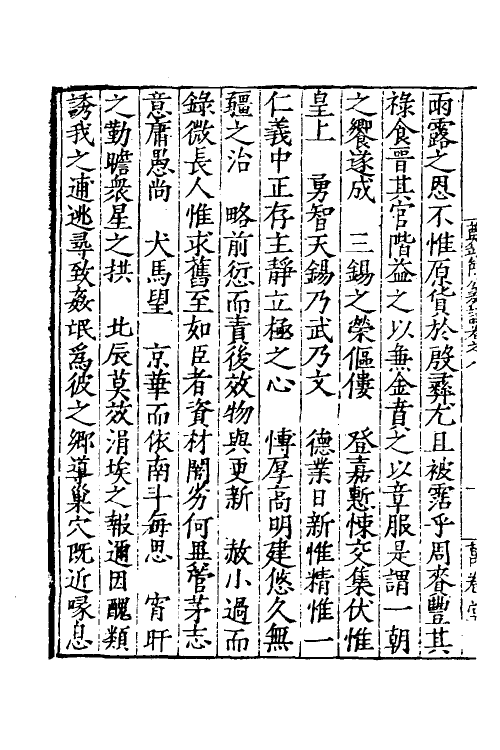 雨露之恩不惟原貨於殷彝尤且被霑乎周賚豐其
祿食晉其官階益之以兼金賁之以章服是謂一朝
之饗遂成　三錫之榮傴僂　登嘉慙悚交集伏惟
皇上　勇智天錫乃武乃文　德業日新惟精惟一
仁義中正存主靜立極之心　慱厚高明建悠久無
疆之治　略前愆而責後效物與更新　赦小過而
錄微長人惟求舊至如臣者資材闒劣何無管茅志
意庸愚尚　犬馬望　京華而依南斗每思　宵旰
之勤瞻衆星之拱　北辰莫效涓埃之報邇因醜類
誘我之逋逃尋致姦氓爲彼之鄉導巢穴既近喙息